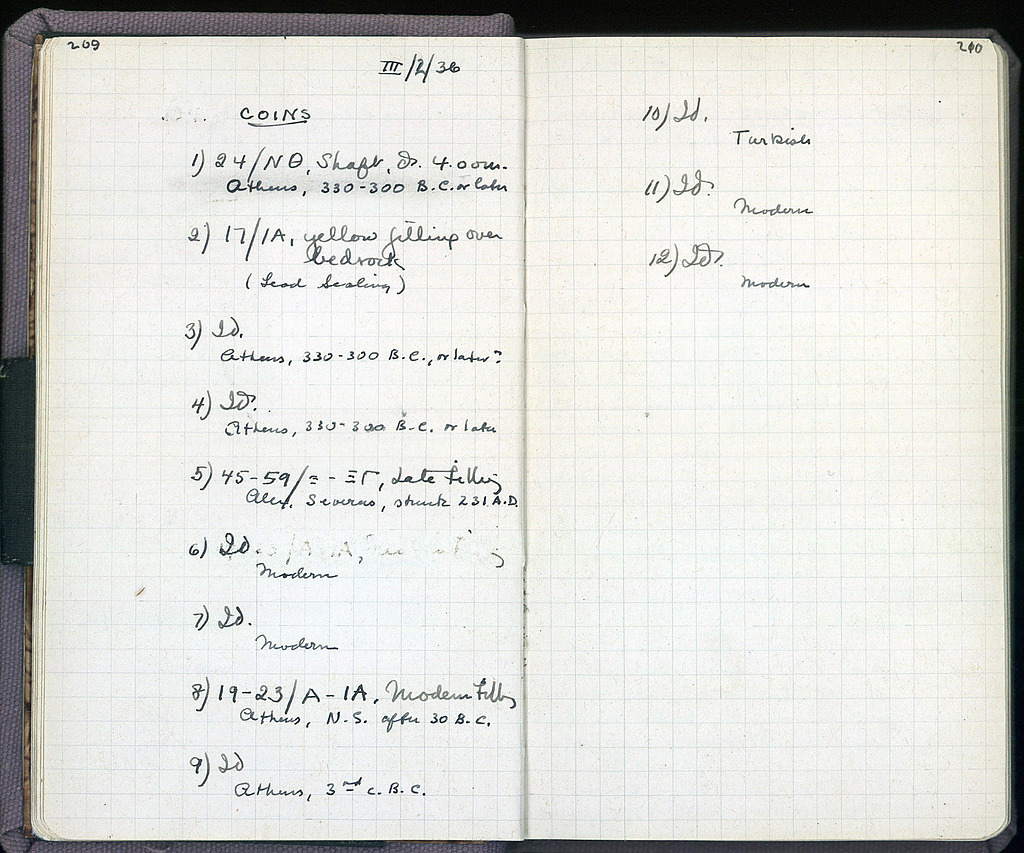 209
III/2/36
COINS
1) 24/ΝΘ, Shaft, 4.00m.
Athens, 330-300 B.C. or later
2) 17/ΙΑ, yellow filling over
bedrock
(Lead Sealing)
3) Id.
Athens, 330-300 B.C., or later?
4) Id.
Athens, 330-300 B.C. or later
5) 45-59/ - ΞΓ, Late Filling
Alex. Severus, struck 231 A.D.
6) Id.
Modern
7) Id.
Modern
8) 19-23/Α-ΙΑ, Modern Filling
Athens, N.S. after 30 B.C.
9) Id
Athens, 3rd c. B.C.
210
10) Id.
Turkish
11) Id.
Modern
12) Id.
Modern